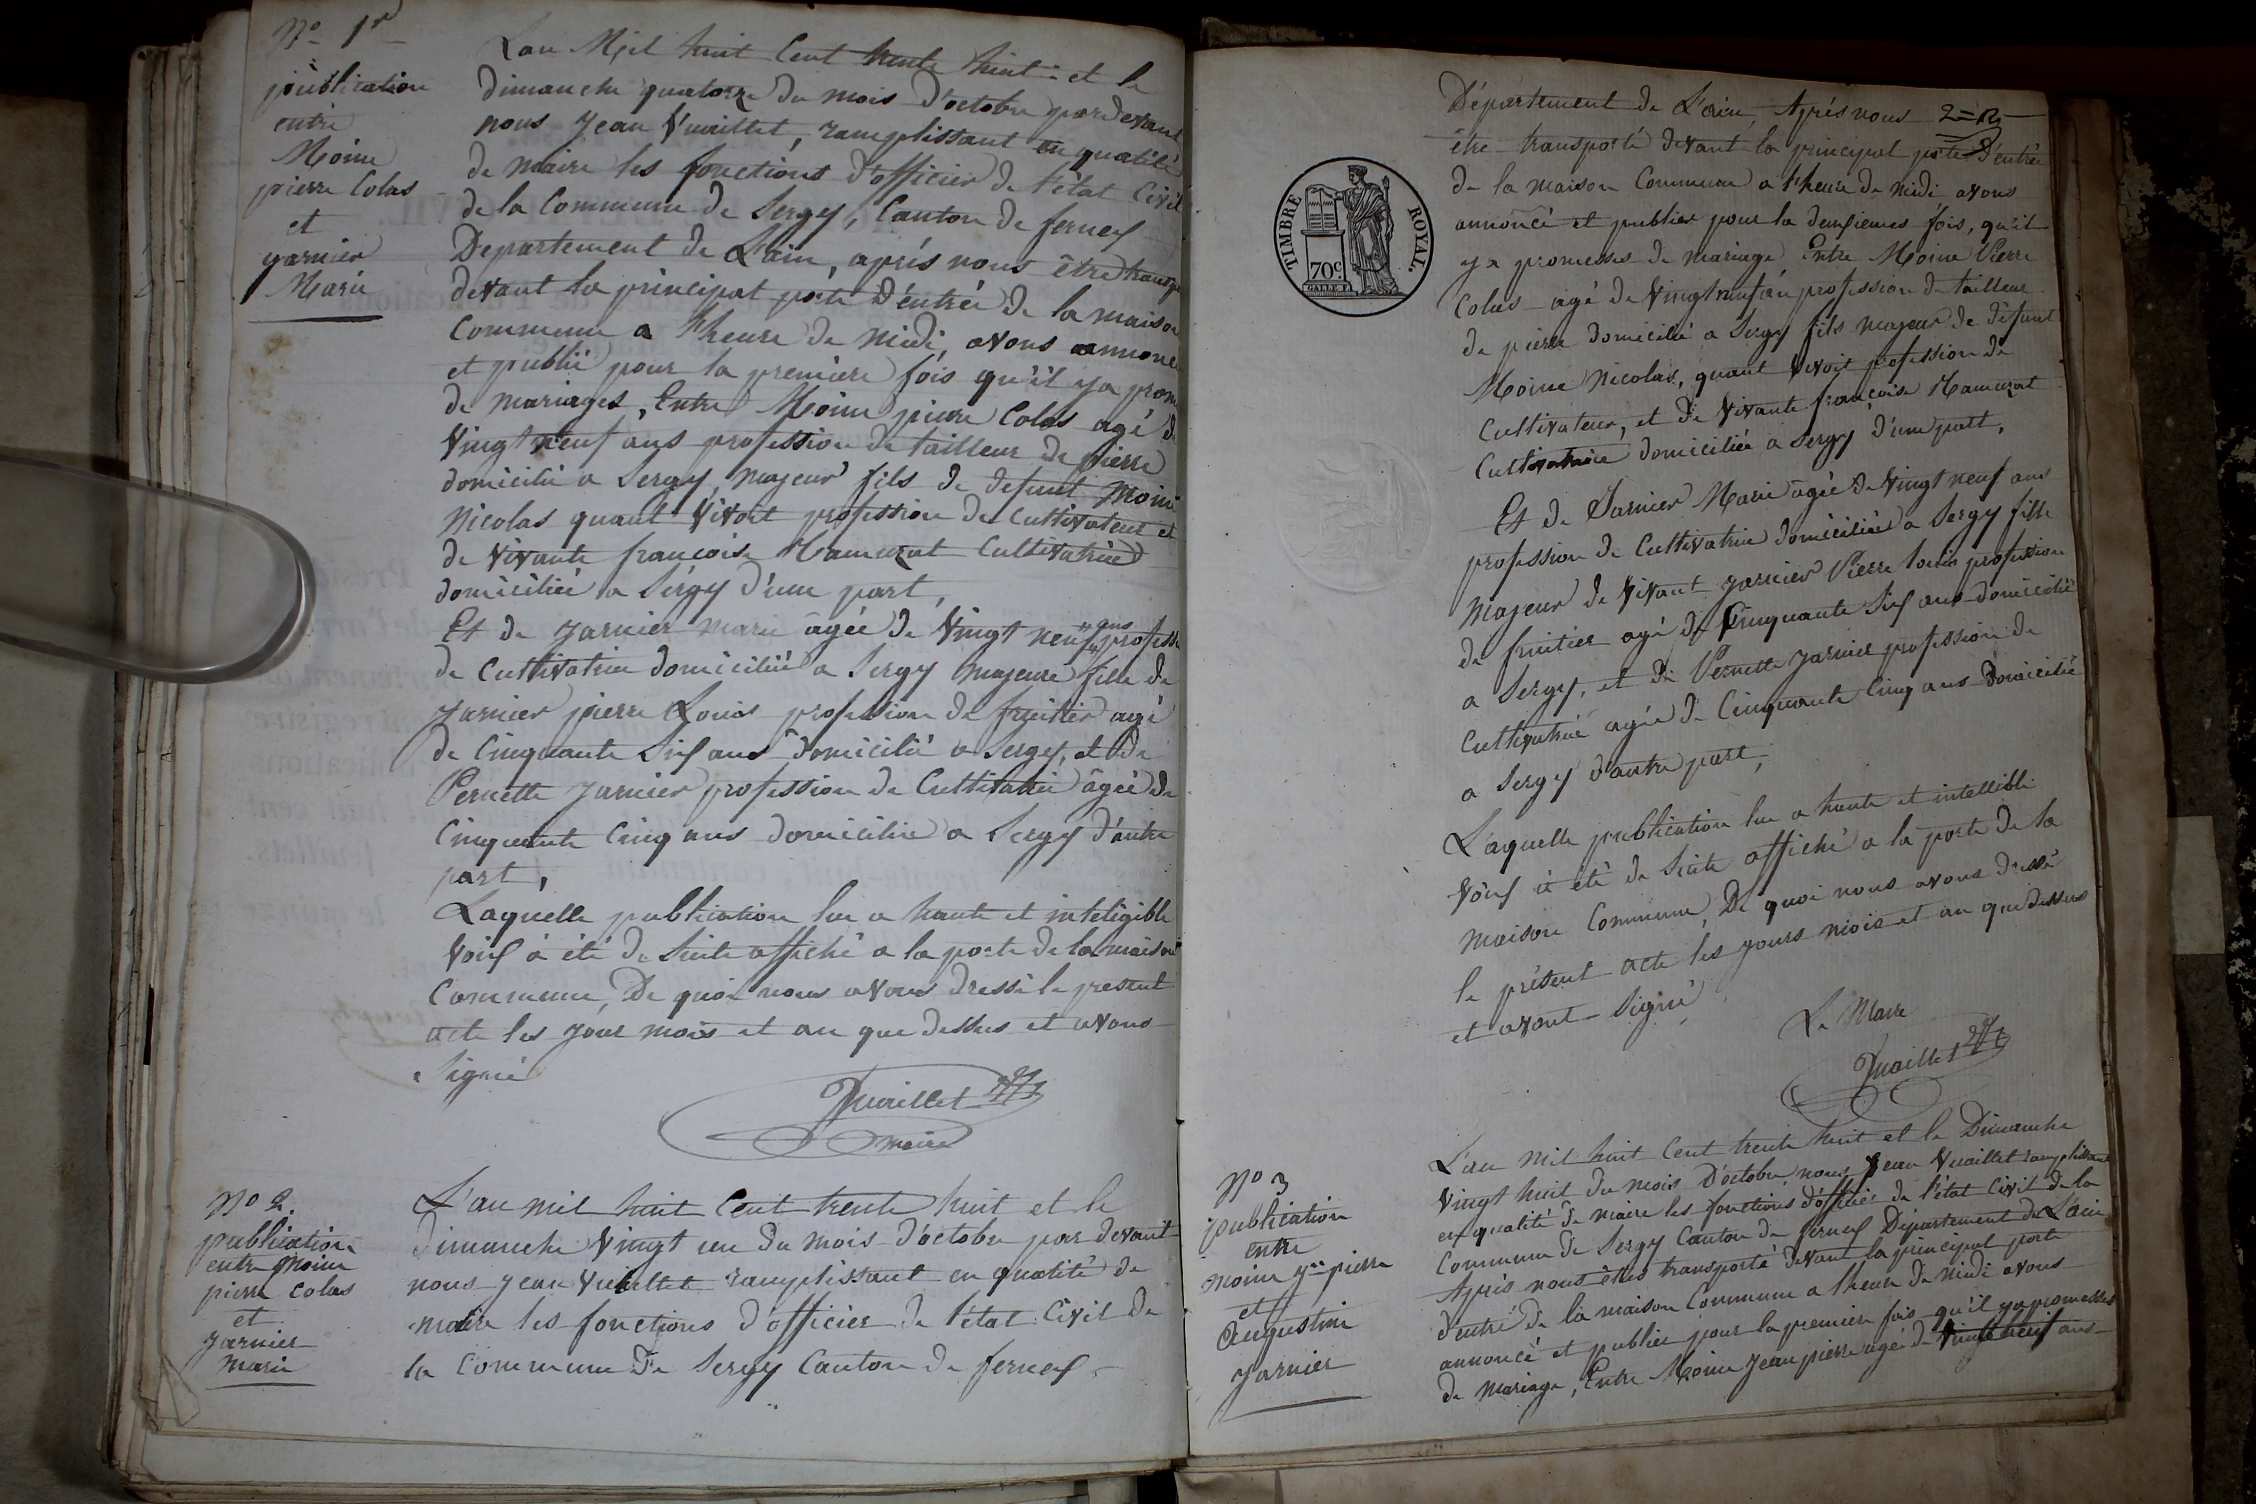 No 1r
publication
entre
Moine
pierre Colas
et
garnier
Marie
Lan Mil huit Cent trente huit et le
dimanche quatorze du mois d'octobre par devant
nous Jean Vuaillet, ramplissant en qualité
de maire les fonctions d'officier de l'état Civil
de la Commune de Sergy, Canton de ferney
Departement de L'ain, aprés nous être transpo
devant la principal porte d'éntrée de la maison
Commune a l'heure de Midi avons annoncé
et publié pour la premiere fois qu'il ya prom
de mariages, Entre Moine pierre Colas agé de
Vingt neuf ans profession de tailleur de pierre
domicilié a Sergy, majeur fils de defunt Moine
Nicolas quant Vivoit profession de Cultivateur et
de Vivante francoise Cultivatrice
domiciliée a Sergy d'une part,
Et de garnier marie agée de Vingt neuf ans professi
de Cultivatrice domiciliée a Sergy majeure fille de
garnier pierre Louis profession de fruitier agé
de Cinquante Six ans domicilié a Sergy, et de
Pernette garnier profession de Cultivatrice âgée de
Cinquante Cinq ans domiciliée a Sergy d'autre
part,
Laquelle publication lue a haute et inteligible
Voix à été de Suite affiché a la porte de la maison
Commune, De quoi nous avons dressé le present
acte les jour mois et an que dessus et avons
Signé
Vuaillet
maire
No 2.
publication
entre Moine
pierre Colas
et
garnier
marie
L'an mil huit Cent trente huit et le
dimanche Vingt un du mois d'octobre par devant
nous jean Vuaillet ramplissant en qualité de
maire les fonctions d'officier de l'état Civil de
la Commune De Sergy Canton de ferney
Département de L'ain, Aprés nous
être transporté devant la principal porte d'éntrée
de la maison Commune a l'heure de midi avons
annoncé et publier pour la deusiemes fois, qu'il
y a promesses de mariage Entre Moine Pierre
Colas agé de Vingt neuf an profession de tailleur
de pierre domicilié a Sergy fils majeur de défunt
Moine Nicolas, quant Vivoit profession de
Cultivateur, et de Vivante françoise
Cultivatrice domiciliée a Sergy d'une part,
Et de Garnier Marie agée de Vingt neuf ans
profession de Cultivatrice domiciliée a Sergy fille
Majeur de Vivant garnier Pierre louis profession
de fruitier agé de Cinquante Six ans domicilié
a Sergy, et de Pernette garnier profession de
Cultivatrice agée de Cinquante Cinq ans domiciliée
a Sergy d'autre part,
Laquelle publication lue a haute et intellible
Voix à été de Suite affiché a la porte de la
maison Commune, De quoi nous avons dressé
le présent acte les jours mois et an que dessus
et avont Signé
Le Maire
Vuaillet
TIMBRE ROYAL.
70c.
No 3
publication
entre
moine jn pierre
et
Augustine
garnier
L'an mil huit Cent trente huit et le Dimanche
Vingt huit du mois D'octobre, nous Jean Vuaillet ramplissant
en qualité de maire les fonctions d'officier de l'état Civil de la
Commune de Sergy Canton de ferney Département de L'ain
Aprés nous êtes transporté devant la principal porte
d'entré de la maison Commune a l'heure de midi avons
annoncé et publier pour la premiere fois qu'il ya promesses
de mariage, Entre Moine Jean pierre agé de ans